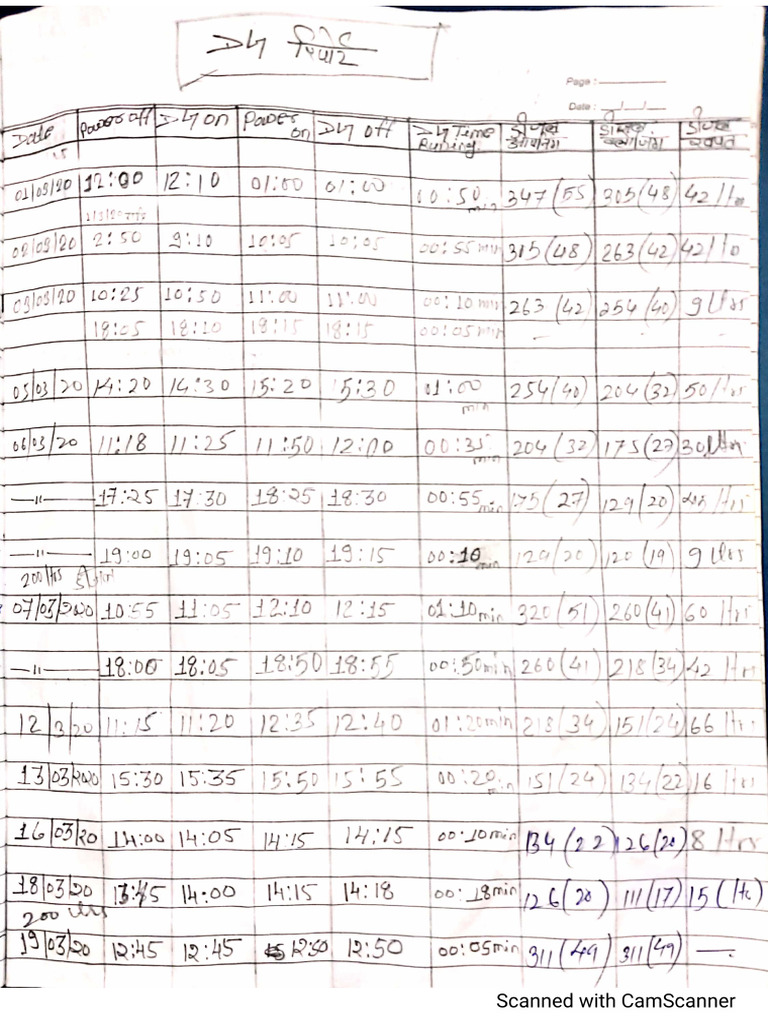 DG रिपोर्ट
Page :
Date :
Date Power off DG on Power on DG off DG Time Running डीजल ओपनिंग डीजल क्लोजिंग डीजल खपत
01/03/20 12:00 12:10 01:00 01:00 00:50 min 347(55) 305(48) 42 ltr
02/03/20 2:50 9:10 10:05 10:05 00:55 min 305(48) 263(42) 42 ltr
03/03/20 10:25 10:50 11:00 11:00 00:10 min 263 (42) 254 (40) 9 Ltrs
18:05 18:10 18:15 18:15 00:05 min - -
05/03/20 14:20 14:30 15:20 15:30 01:00 min 254(40) 204(32) 50 ltrs
06/03/20 11:18 11:25 11:50 12:00 00:35 min 204 (32) 175(27) 30 Ltr
—"— 17:25 17:30 18:25 18:30 00:55 min 175(27) 129(20) Ltrs
—"— 19:00 19:05 19:10 19:15 00:10 min 129(20) 120(19) 9 Ltrs
200 ltrs
07/03/2020 10:55 11:05 12:10 12:15 01:10 min 320(51) 260(41) 60 Hrs
—"— 18:00 18:05 18:50 18:55 00:50 min 260(41) 218(34) 42 Hrs
12/3/20 11:15 11:20 12:35 12:40 01:20 min 218(34) 151(24) 66 Hrs
13/03/2020 15:30 15:35 15:50 15:55 00:20 min 151(24) 134(22) 16 Hrs
16/03/20 14:00 14:05 14:15 14:15 00:10 min 134(22) 126(20) 8 Hrs
18/03/20 13:45 14:00 14:15 14:18 00:18 min 126(20) 111(17) 15
200 Ltrs
19/03/20 12:45 12:45 12:50 12:50 00:05 min 311(49) 311(49) —
Scanned with CamScanner